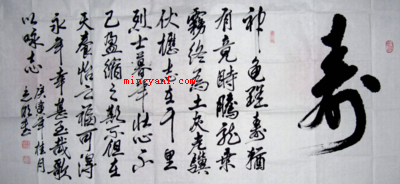 寿
神龟雖壽猶
有竟時騰蛇乘
霧終為土灰老驥
伏櫪志在千里
烈士暮年壮心不
已盈缩之期不但在
天養怡之福可得
永年幸甚至哉歌
以咏志
庚寅年桂月
mingyanf.com